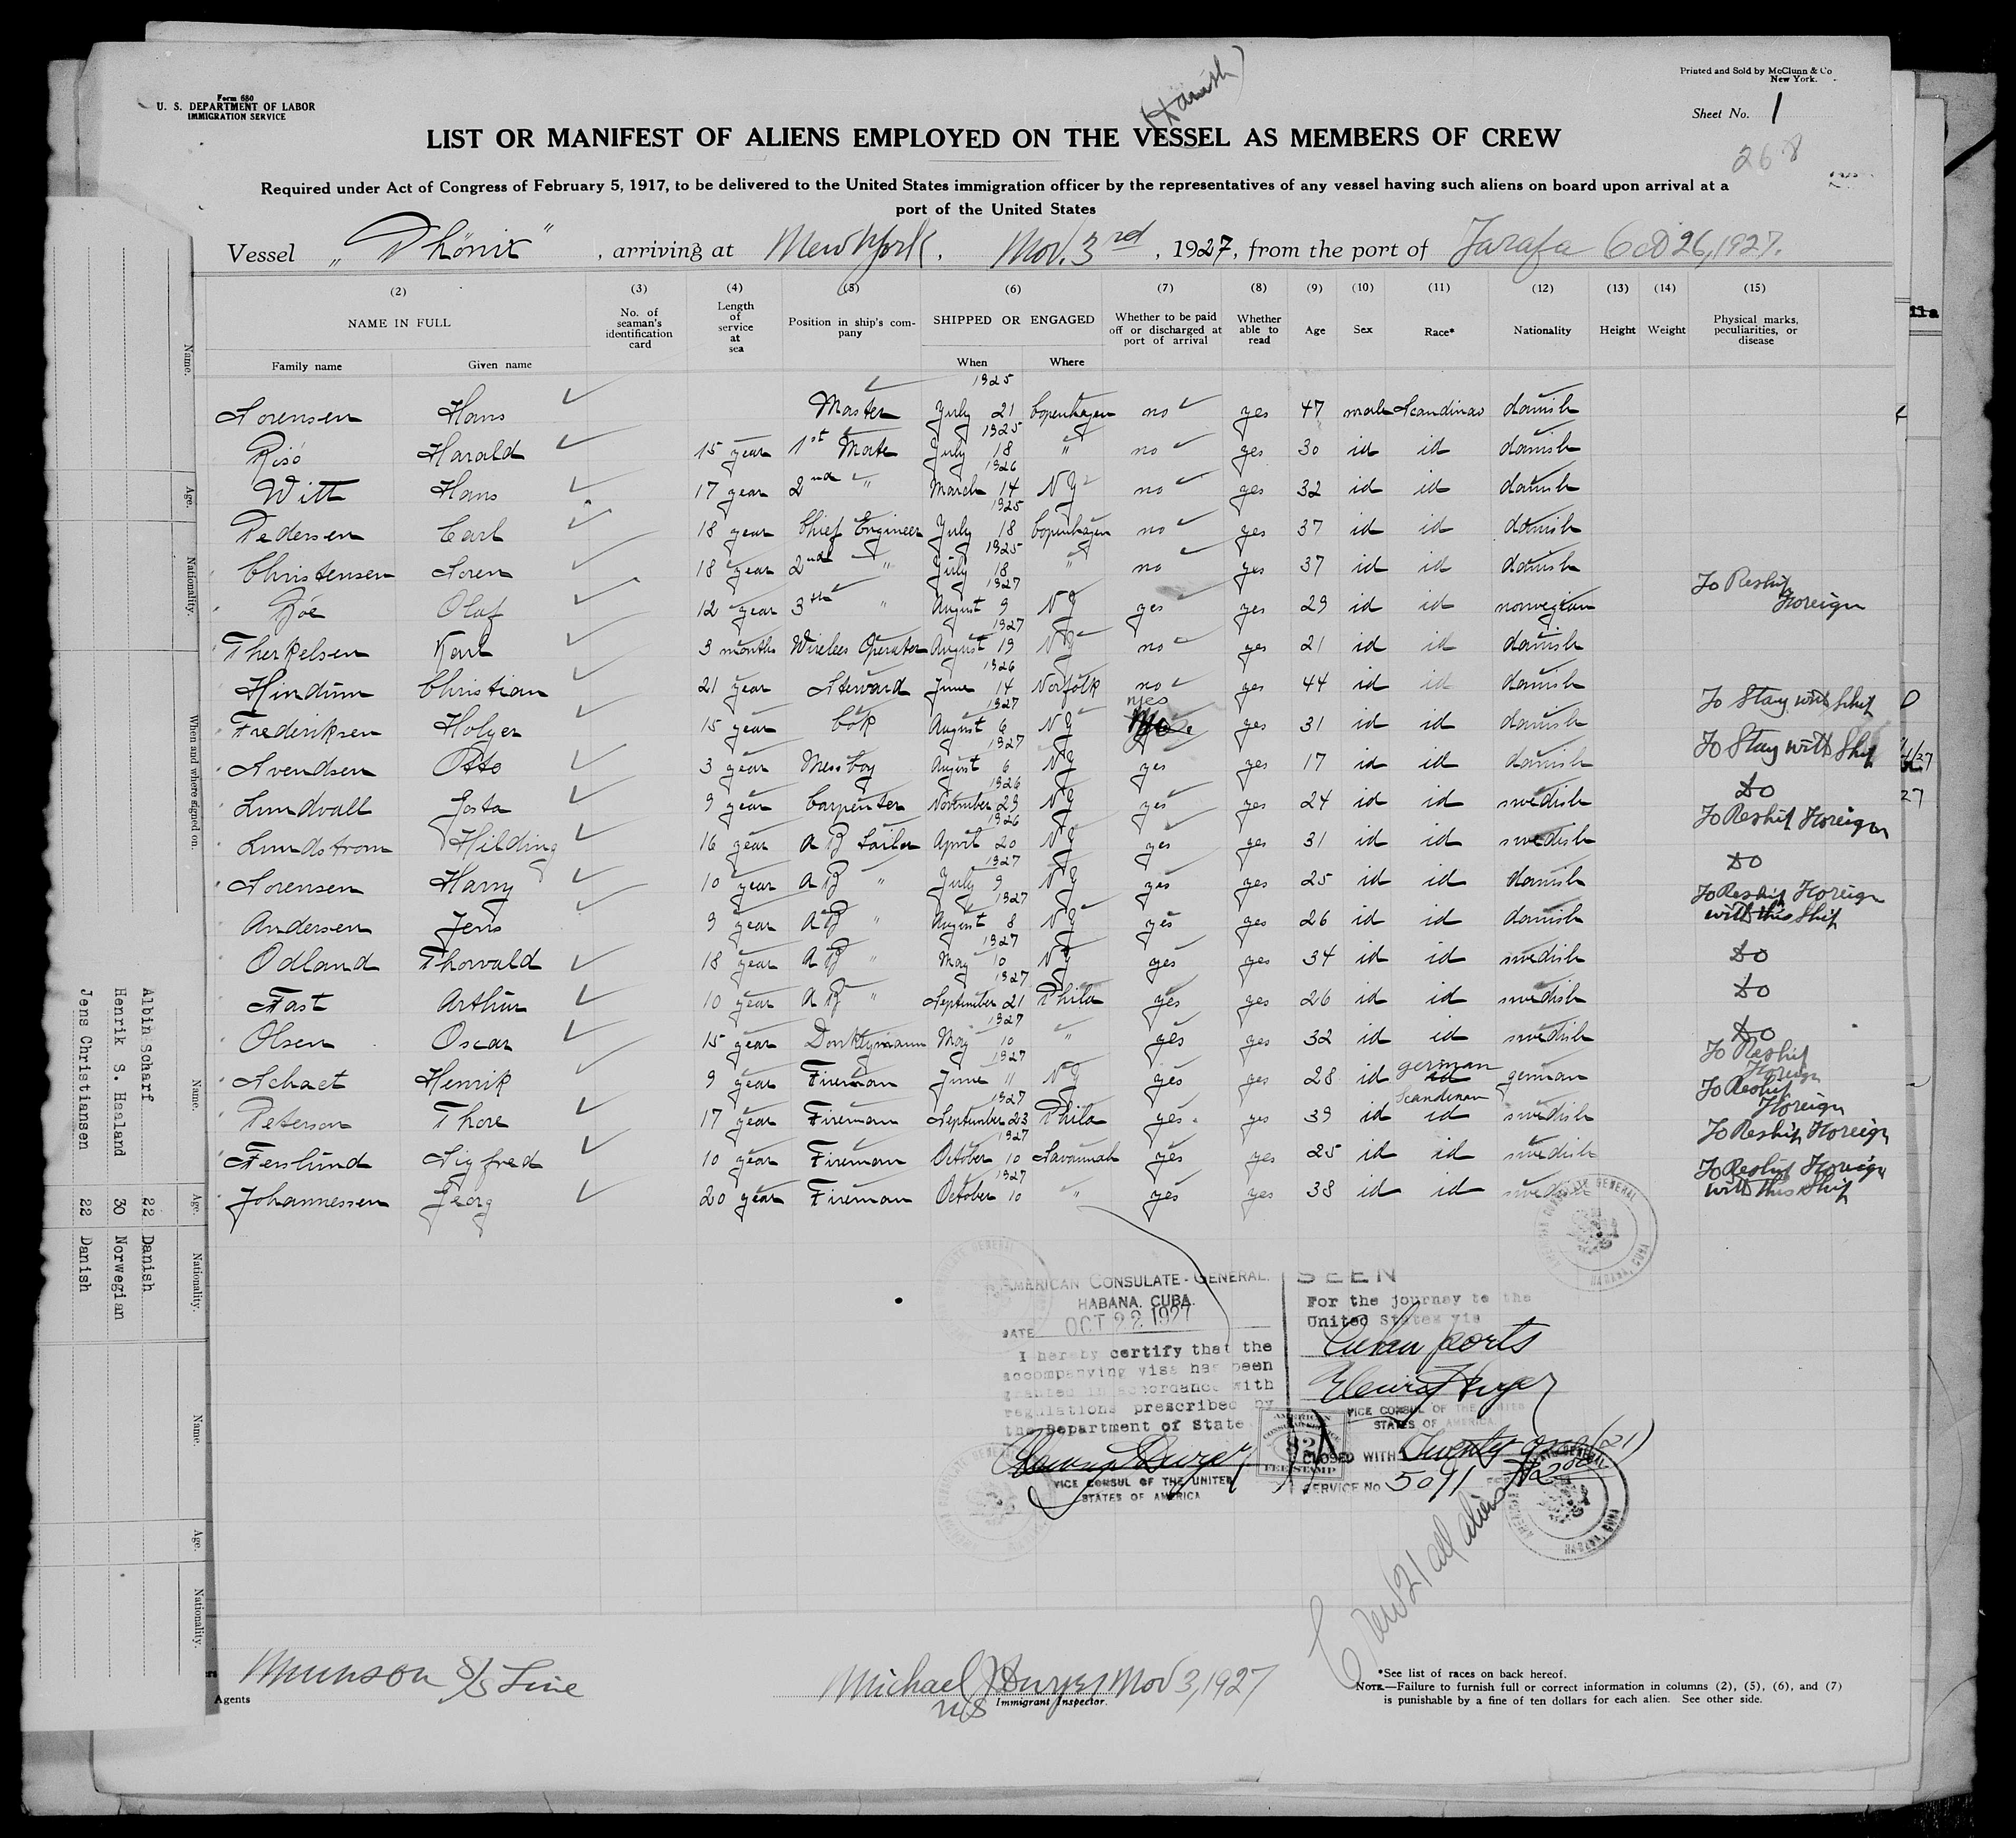 Form 680
U. S. DEPARTMENT OF LABOR
IMMIGRATION SERVICE
Printed and Sold by McClunn & Co
New York.
Sheet No. 1
268
LIST OR MANIFEST OF ALIENS EMPLOYED ON THE VESSEL AS MEMBERS OF CREW
Required under Act of Congress of February 5, 1917, to be delivered to the United States immigration officer by the representatives of any vessel having such aliens on board upon arrival at a
port of the United States
Vessel „Phönix", arriving at New York, Nov. 3rd, 1927, from the port of Tarafa Oct 26, 1927.
(2) (3) (4) (5) (6) (7) (8) (9) (10) (11) (12) (13) (14) (15)
NAME IN FULL No. of seaman's identification card Length of service at sea Position in ship's company SHIPPED OR ENGAGED Whether to be paid off or discharged at port of arrival Whether able to read Age Sex Race* Nationality Height Weight Physical marks, peculiarities, or disease
Family name Given name When Where
Sorensen Hans Master July 21 1925 Copenhagen no yes 47 male Scandinav danish
Riso Harald 15 year 1st Mate July 18 1925 " no yes 30 id id danish
Witt Hans 17 year 2nd " March 14 1926 NY no yes 32 id id danish
Pedersen Carl 18 year Chief Engineer July 18 1925 Copenhagen no yes 37 id id danish
Christensen Soren 18 year 2nd " July 18 1925 " no yes 37 id id danish
Olaf 12 year 3th " August 9 1927 NY yes yes 29 id id norwegian To Reship Foreign
Therkelsen Karl 3 months Wireless Operator August 19 1927 NY no yes 21 id id danish
Hindum Christian 21 year Steward June 14 1926 Norfolk no yes 44 id id danish
Frederiksen Holger 15 year Cok August 6 1927 NY yes yes 31 id id danish To Stay with Ship
Svendsen Otto 3 year Messboy August 6 1927 NY yes yes 17 id id danish To Stay with Ship
Lundvall Gosta 9 year Carpenter November 29 1926 NY yes yes 24 id id swedish Do
Lundstrom Hilding 16 year AB Sailor April 20 1926 NY yes yes 31 id id swedish To Reship Foreign
Sorensen Harry 10 year AB " July 9 1927 NY yes yes 25 id id danish Do
Andersen Jens 9 year AB " August 8 1927 NY yes yes 26 id id danish To Reship Foreign with this Ship
Odland Thorvald 18 year AB " May 10 1927 NY yes yes 34 id id swedish Do
Fast Arthur 10 year AB " September 21 1927 Phila yes yes 26 id id swedish Do
Olsen Oscar 15 year Donkeymann May 10 1927 " yes yes 32 id id swedish Do
Schact Henrik 9 year Fireman June 11 1927 NY yes yes 28 id german german To Reship Foreign
Peterson Thore 17 year Fireman September 23 1927 Phila yes yes 39 id Scandinav id swedish To Reship Foreign
Fenlund Sigfred 10 year Fireman October 10 1927 Savannah yes yes 25 id id swedish To Reship Foreign
Johannessen Georg 20 year Fireman October 10 1927 " yes yes 38 id id swedish To Reship Foreign with this Ship
AMERICAN CONSULATE-GENERAL,
HABANA, CUBA.
DATE OCT 22 1927
I hereby certify that the
accompanying visa has been
granted in accordance with
regulations prescribed by
the Department of State
VICE CONSUL OF THE UNITED
STATES OF AMERICA
SEEN
For the journey to the
United States via
Cuban ports
VICE CONSUL OF THE UNITED
STATES OF AMERICA.
CLOSED WITH Twenty one (21)
SERVICE NO 5091
AMERICAN CONSULAR SERVICE
$2
FEE STAMP
AMERICAN CONSULATE GENERAL
HABANA, CUBA
Crew 21 all aliens
Munson S/S Line
Agents
Michael Nov 3, 1927
Immigrant Inspector.
*See list of races on back hereof.
NOTE.—Failure to furnish full or correct information in columns (2), (5), (6), and (7)
is punishable by a fine of ten dollars for each alien. See other side.
Name. Age. Nationality. When and where signed on.
Name. Age. Nationality.
Albin Scharf 22 Danish
Henrik S. Haaland 30 Norwegian
Jens Christiansen 22 Danish
Name. Age. Nationality.